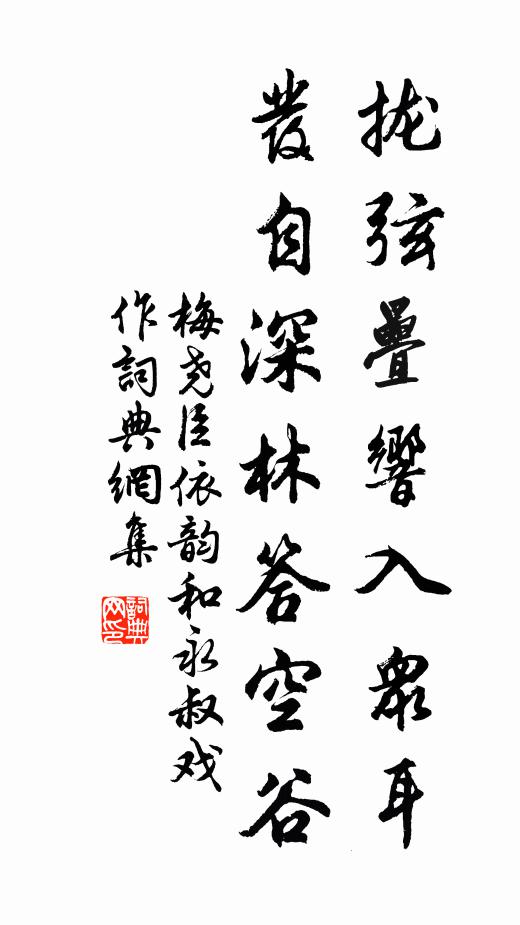 拢弦疊響入衆耳
發自深林答空谷
梅尧臣依韵和永叔戏
作詞典網集
詞典网印